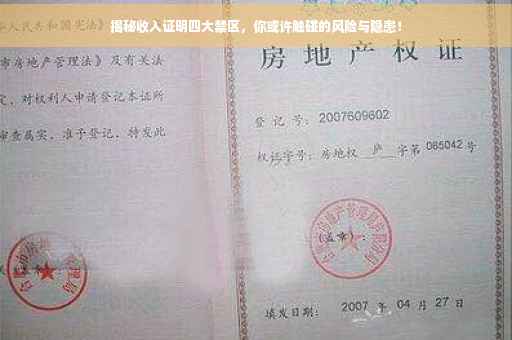 揭秘收入证明四大禁区，你或许触碰的风险与隐患！
华人民共和国宪法》
市房地产管理法》及有关法
定，对权利人申请登记本证所
审查属实，准予登记，特发此
房地产权证
登记号：2007609602
权证字号：房地权 庐 字第 065042 号
(盖章)：
填发日期：2007 年 04 月 27 日